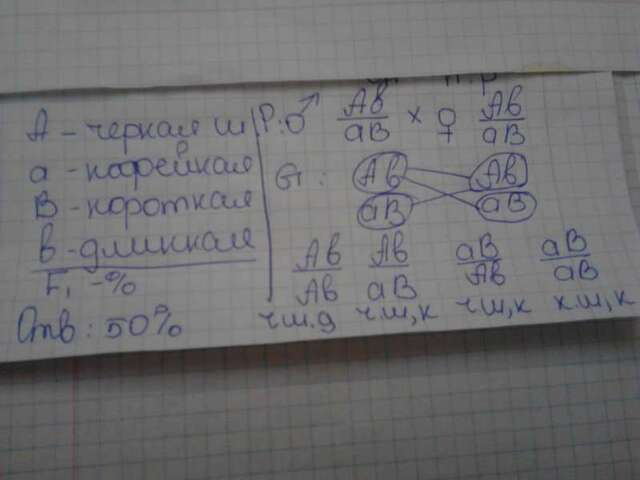 А - черная ш
а - кофейная
В - короткая
в - длинная
F₁ - %
Отв: 50%
P: ♂ Ab/aB x ♀ Ab/aB
G: Ab Ab
aB aB
Ab/Ab Ab/aB aB/Ab aB/aB
ч ш, д ч ш, к ч ш, к к ш, к